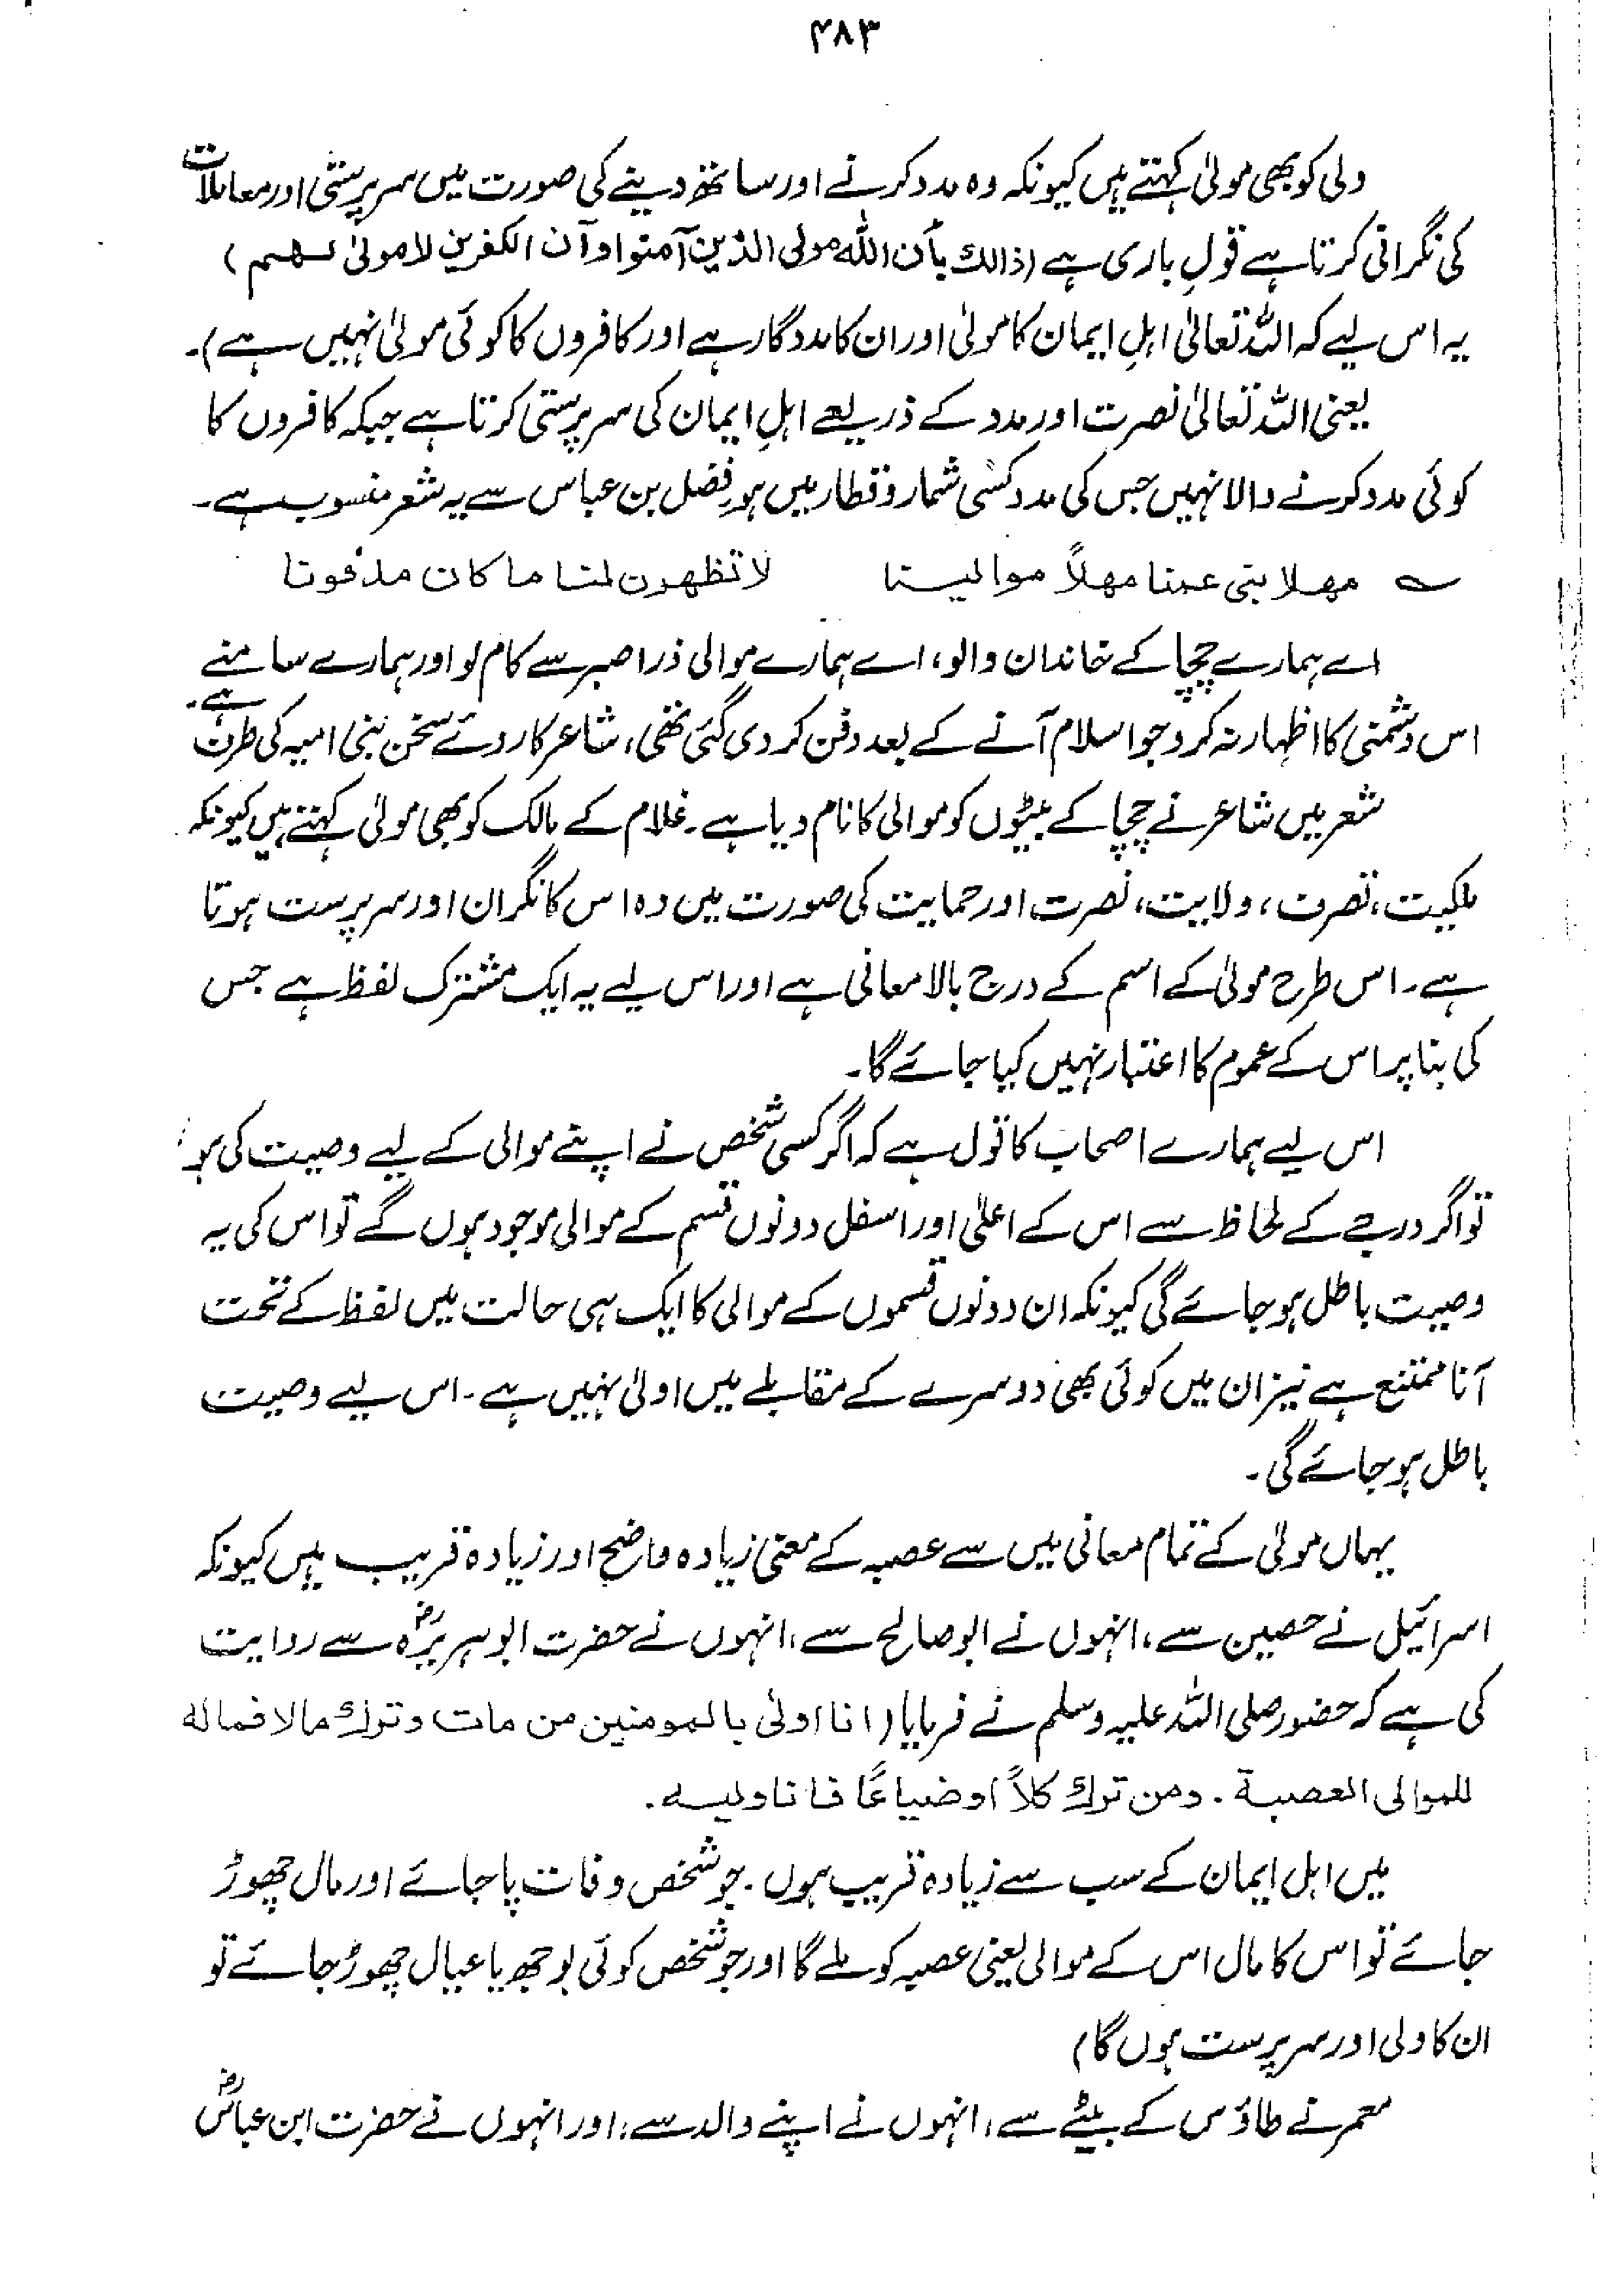 ۴۸۳
ولی کو بھی مولیٰ کہتے ہیں کیونکہ وہ مدد کرنے اور ساتھ دینے کی صورت میں سرپرستی اور معاملات
کی نگرانی کرتا ہے قولِ باری ہے (ذالك بأن الله مولى الذين آمنوا وآن الكفرين لا مولىٰ لهم)
یہ اس لیے کہ اللہ تعالیٰ اہلِ ایمان کا مولیٰ اور ان کا مددگار ہے اور کافروں کا کوئی مولیٰ نہیں ہے)۔
یعنی اللہ تعالیٰ نصرت اور مدد کے ذریعے اہلِ ایمان کی سرپرستی کرتا ہے جبکہ کافروں کا
کوئی مدد کرنے والا نہیں جس کی مدد کسی شمار و قطار میں ہو۔ فضل بن عباس سے یہ شعر منسوب ہے۔
؎ مهلا بنى عمنا مهلاً موالينا لا تظهرن لنا ما كان مدفونا
اے ہمارے چچا کے خاندان والو، اے ہمارے موالی ذرا صبر سے کام لو اور ہمارے سامنے
اس دشمنی کا اظہار نہ کرو جو اسلام آنے کے بعد دفن کر دی گئی تھی، شاعر کا روئے سخن بنی امیہ کی طرف ہے۔
شعر میں شاعر نے چچا کے بیٹوں کو موالی کا نام دیا ہے۔ غلام کے مالک کو بھی مولیٰ کہتے ہیں کیونکہ
ملکیت، تصرف، ولایت، نصرت اور حمایت کی صورت میں وہ اس کا نگران اور سرپرست ہوتا
ہے۔ اس طرح مولیٰ کے اسم کے درج بالا معانی ہے اور اس لیے یہ ایک مشترک لفظ ہے جس
کی بنا پر اس کے عموم کا اعتبار نہیں کیا جائے گا۔
اس لیے ہمارے اصحاب کا قول ہے کہ اگر کسی شخص نے اپنے موالی کے لیے وصیت کی ہو
تو اگر درجے کے لحاظ سے اس کے اعلیٰ اور اسفل دونوں قسم کے موالی موجود ہوں گے تو اس کی یہ
وصیت باطل ہو جائے گی کیونکہ ان دونوں قسموں کے موالی کا ایک ہی حالت میں لفظ کے تحت
آنا ممتنع ہے نیز ان میں کوئی بھی دوسرے کے مقابلے میں اولیٰ نہیں ہے۔ اس لیے وصیت
باطل ہو جائے گی۔
یہاں مولیٰ کے تمام معانی میں سے عصبہ کے معنی زیادہ واضح اور زیادہ قریب ہیں کیونکہ
اسرائیل نے حصین سے، انہوں نے ابو صالح سے، انہوں نے حضرت ابو ہریرہؓ سے روایت
کی ہے کہ حضور صلی اللہ علیہ وسلم نے فرمایا (انا اولىٰ بالمومنين من مات وترك مالا فماله
للموالى العصبة. ومن ترك كلاً او ضياعًا فانا وليه.
میں اہل ایمان کے سب سے زیادہ قریب ہوں۔ جو شخص وفات پا جائے اور مال چھوڑ
جائے تو اس کا مال اس کے موالی یعنی عصبہ کو ملے گا اور جو شخص کوئی بوجھ یا عیال چھوڑ جائے تو
ان کا ولی اور سرپرست ہوں گا)
معمر نے طاؤس کے بیٹے سے، انہوں نے اپنے والد سے، اور انہوں نے حضرت ابن عباسؓ